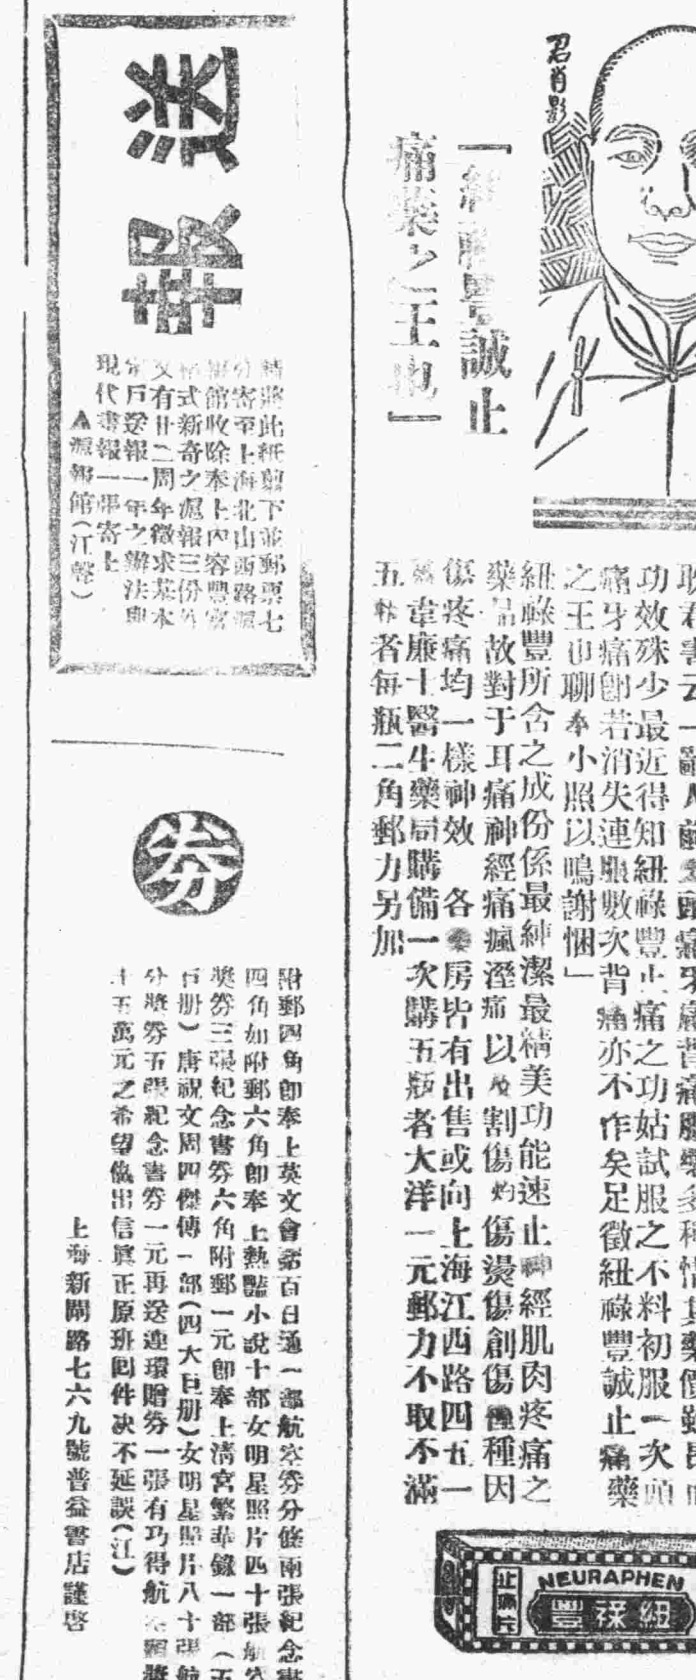 君肖影
「紐祿豐誠止
痛藥之王也」
功效殊少最近得知紐祿豐止痛之功姑試服之不料初服一次頭
痛牙痛卽若消失連服數次背痛亦不作矣足徵紐祿豐誠止痛藥
之王也聊奉小照以鳴謝悃」
紐祿豐所含之成份係最純潔最精美功能速止神經肌肉疼痛之
藥品故對于耳痛神經痛瘋溼痛以及割傷灼傷燙傷創傷種種因
傷疼痛均一樣神效 各藥房皆有出售或向上海江西路四五一
韋廉士醫生藥局購備一次購五瓶者大洋一元郵力不取不滿
五瓶者每瓶二角郵力另加
止痛片
NEURAPHEN
紐祿豐
送報
將此紙剪下並郵票七
分寄至上海北山西路滬
報館收除奉上內容豐富
格式新奇之滬報三份外
又有廿二周年徵求基本
定戶送報一年之辦法與
現代書報一張寄上
▲滬報館(江聲)
券
附郵四角卽奉上英文會話百日通一部航空券分條兩張紀念書
四角如附郵六角卽奉上熱豔小說十部女明星照片四十張航空
獎券三張紀念書券六角附郵一元卽奉上清宮繁華錄一部(五
百册)唐祝文周四傑傳一部(四大巨册)女明星照片八十張航
分獎券五張紀念書券一元再送連環贈券一張有巧得航
十五萬元之希望儀出信眞正原班回件决不延誤(江)
上海新閘路七六九號普益書店謹啓